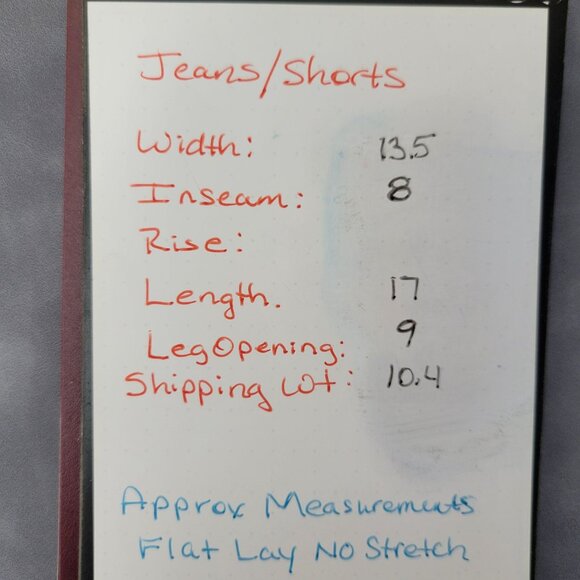 Jeans/Shorts
Width: 13.5
Inseam: 8
Rise:
Length. 17
Leg Opening: 9
Shipping Wt: 10.4
Approx Measurements
Flat Lay No Stretch